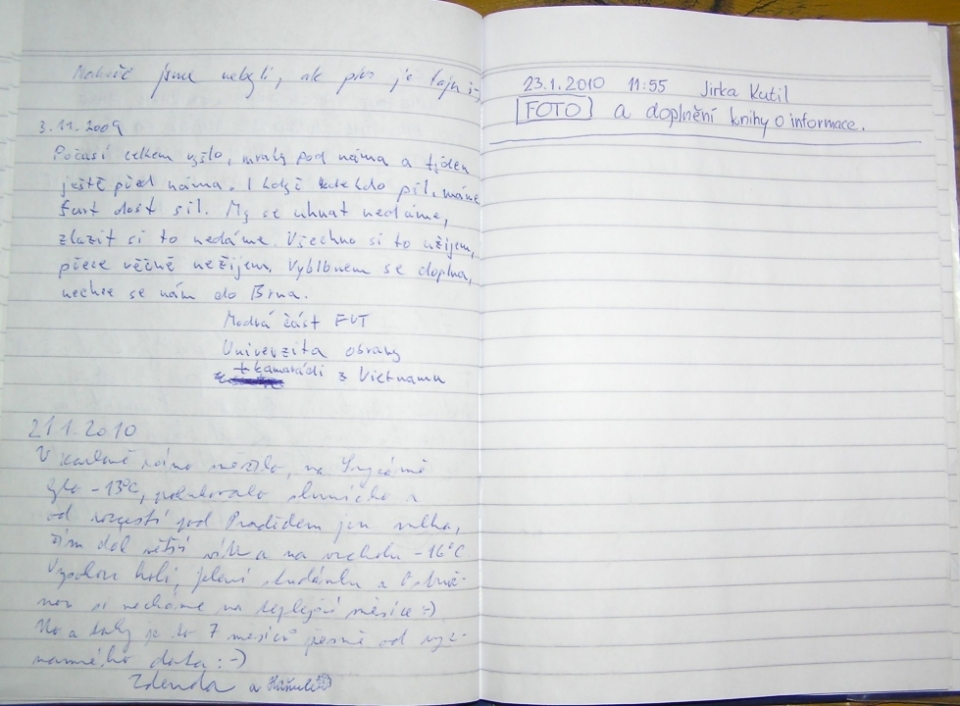 jsme nebyli, ale pivo je fajn :-)
3.11.2009
Počasí celkem vyšlo, mraky pod náma a týden
ještě před náma. I když kdekdo pil, máme
furt dost sil. My se uhnat nedáme,
zkazit si to nedáme. Všechno si to užijem,
přece věčně nežijem. Vyblbnem se doplna,
nechce se nám do Brna.
Modrá část FVT
Univerzita obrany
+ kamarádi z Vietnamu
21.1.2010
V Karlově mírně mrzlo, na
bylo -13°C, sluníčko a
od rozcestí pod Pradědem jen mlha,
čím dál větší a na vrcholu -16°C.
holi, Jelení studánku a
si necháme na teplejší měsíce :-)
No a taky je to 7 měsíců přesně od výz-
namného data :-)
Zdenda a
23.1.2010 11:55 Jirka Kutil
FOTO a doplnění knihy o informace.